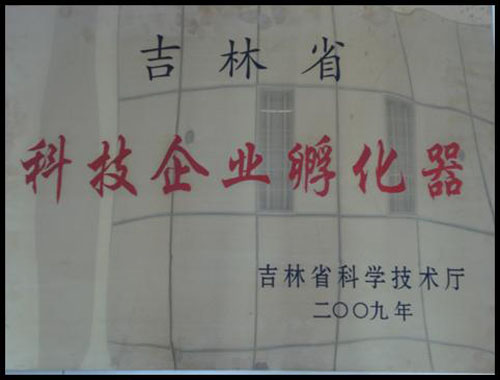 吉林省
科技企业孵化器
吉林省科学技术厅
二〇〇九年